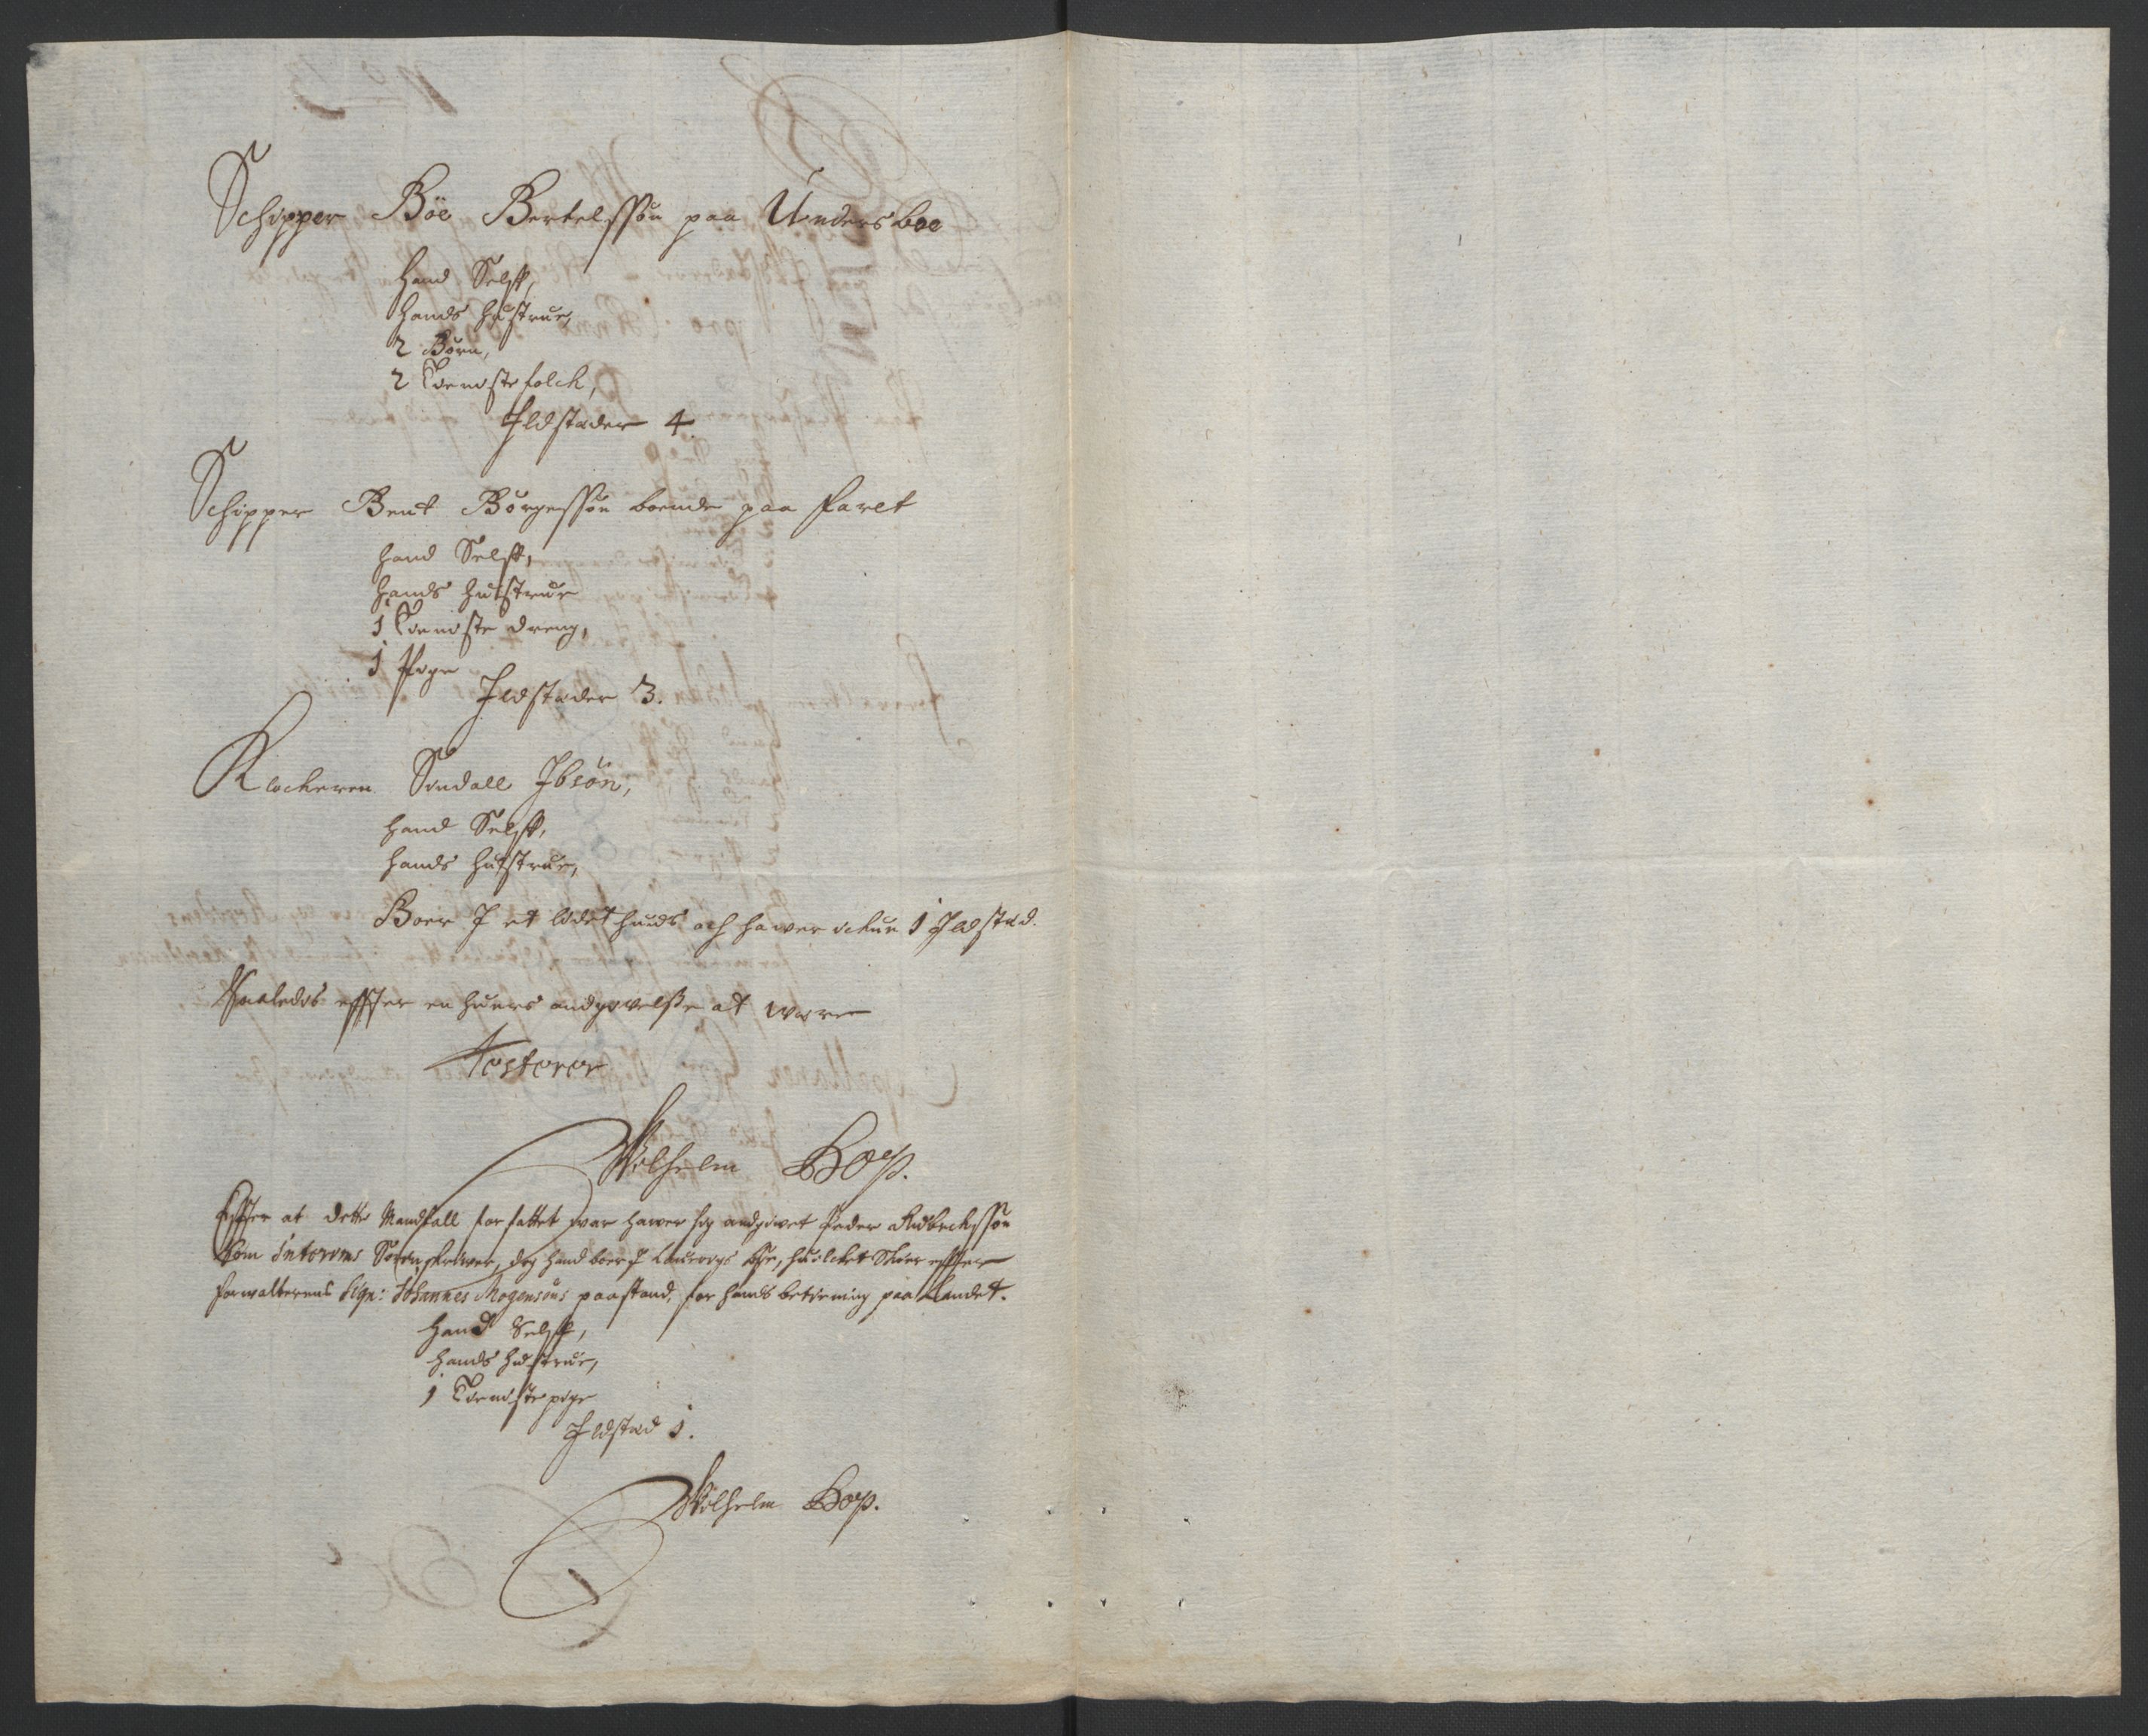 Schipper Böe Bertelssøn paa Undersboe
Hand Selff,
Hands Hustrue,
2 Børn,
2 Tieniste folch,
Ildstæder 4
Schipper Bent Børgessøn boende paa Faret
Hand Selff,
Hands Hustrue
1 Tieniste dreng,
1 Pige
Ildstæder 3.
Klockeren Sindall Ibsøn,
Hand Selff,
Hands Hustrue,
Boer I et lidet huuds och hawer ickun 1 Ildstæd.
Saaledis effter en huers andgiwelße at were
Testerer
Wilhelm Boÿs.
Effter at dette Mandtall forfattet war hawer sig andgiwet Peder
Som interims Sorenskriwer, dog hand boer I Laurwigs bye, huilcket Skeer effter
forwalterens Sign: Johannes Mogensøns paastand, for hands betiening paa Landet.
Hand Selff,
Hands Hustrue,
1 Tieniste pige
Ildstæd 1.
Wilhelm Boÿs.